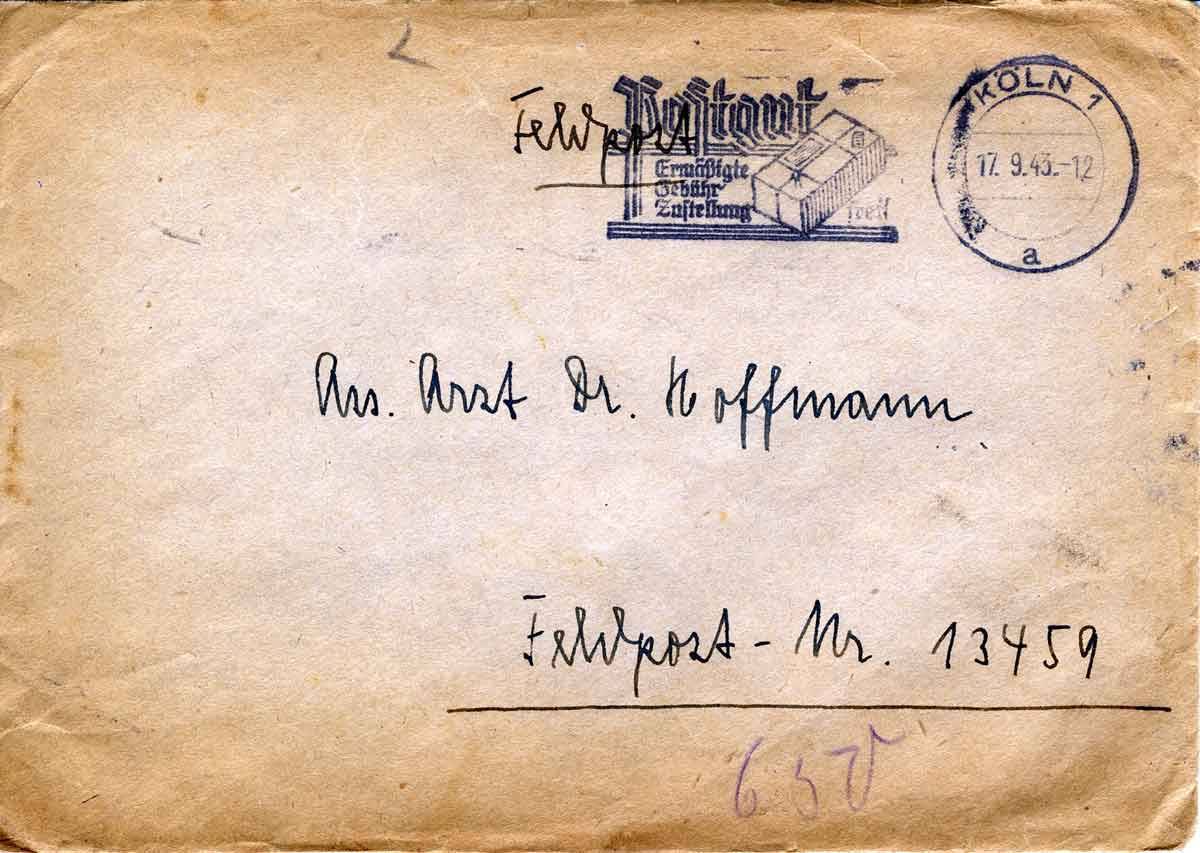 Feldpost
Postgut
Ermäßigte
Gebühr
Zustellung frei!
KÖLN 1
17. 9.43.-12
a
Ass. Arzt Dr. Hoffmann
Feldpost-Nr. 13459